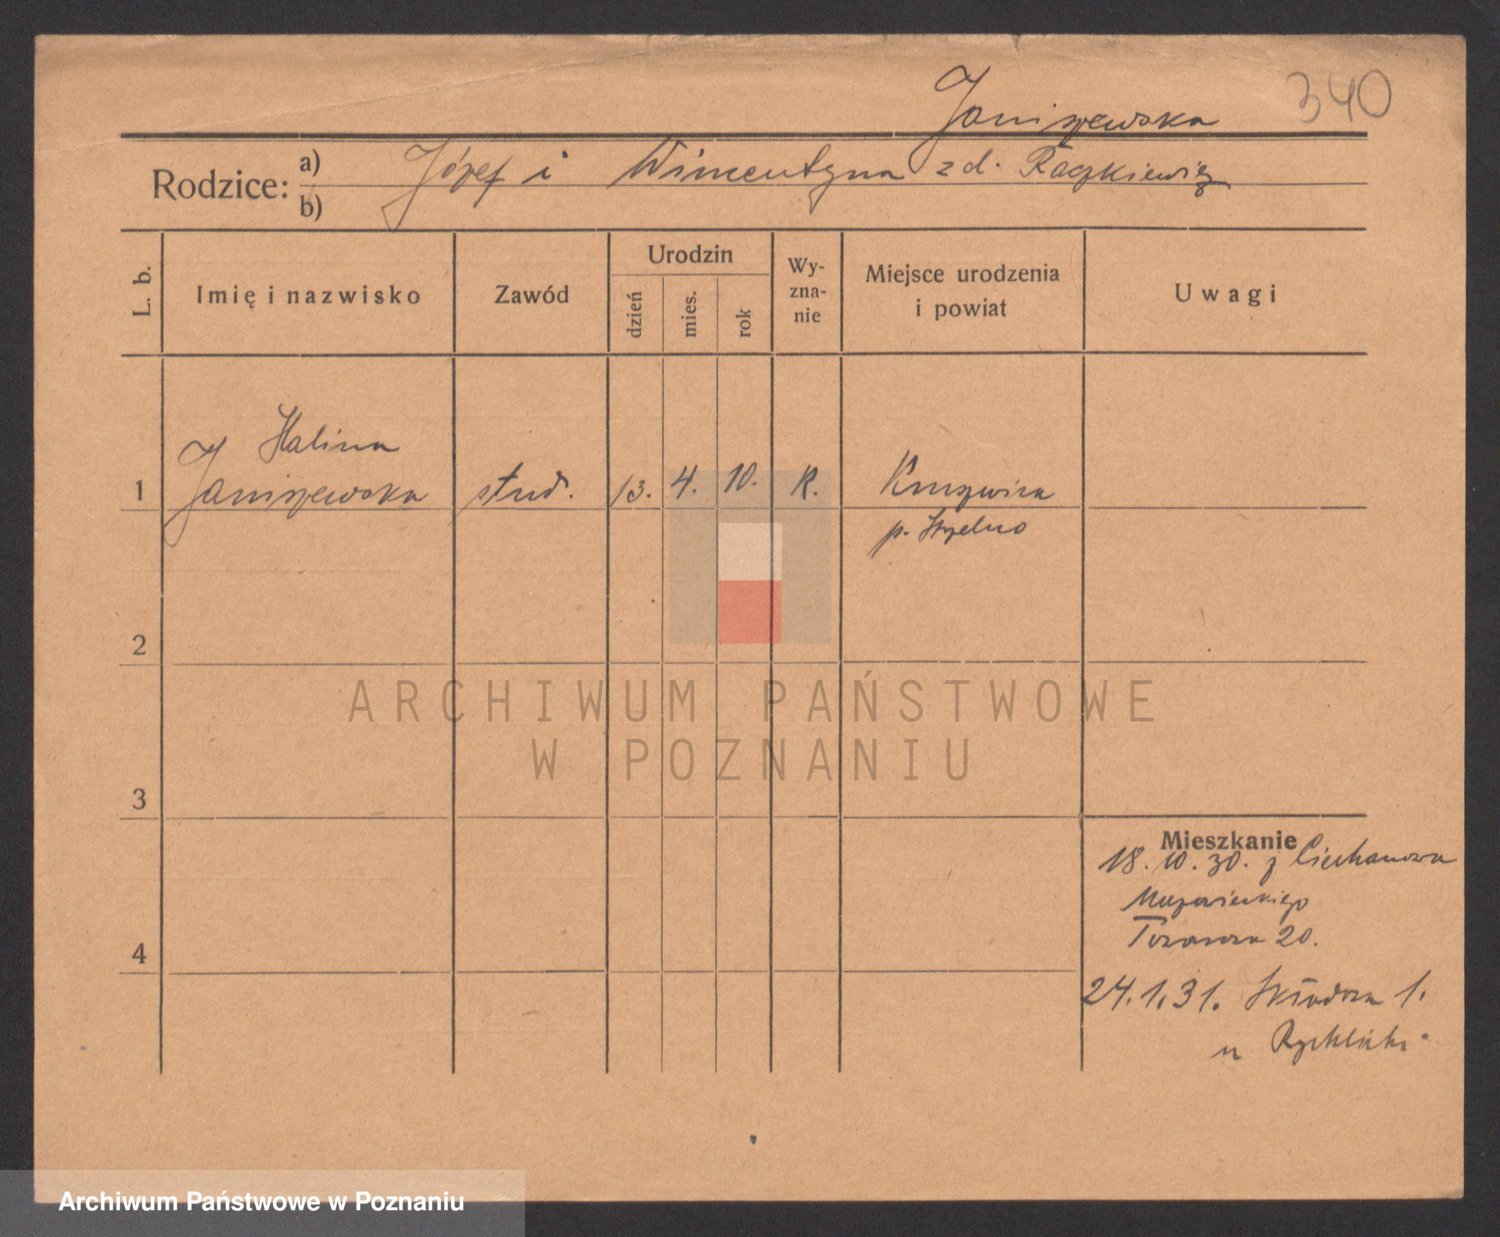 Janiszewska 340
Rodzice: a) Józef i Wincentyna z d. Raczkiewicz
b)
L. b.
Imię i nazwisko
Zawód
Urodzin
dzień
mies.
rok
Wy-
zna-
nie
Miejsce urodzenia
i powiat
Uwagi
Halina
1 Janiszewska stud. 13. 4. 10. R. Kruszwica
p. Strzelno
2
ARCHIWUM PAŃSTWOWE
W POZNANIU
3
Mieszkanie
18.10.30. z Ciechanowa
Mazowieckiego
20.
4
24.1.31. 1.
u
Archiwum Państwowe w Poznaniu